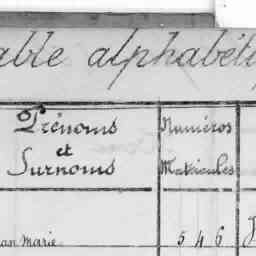 able alphabéti
Prénoms
et
Surnoms
Numéros
Matricules
an Marie
546